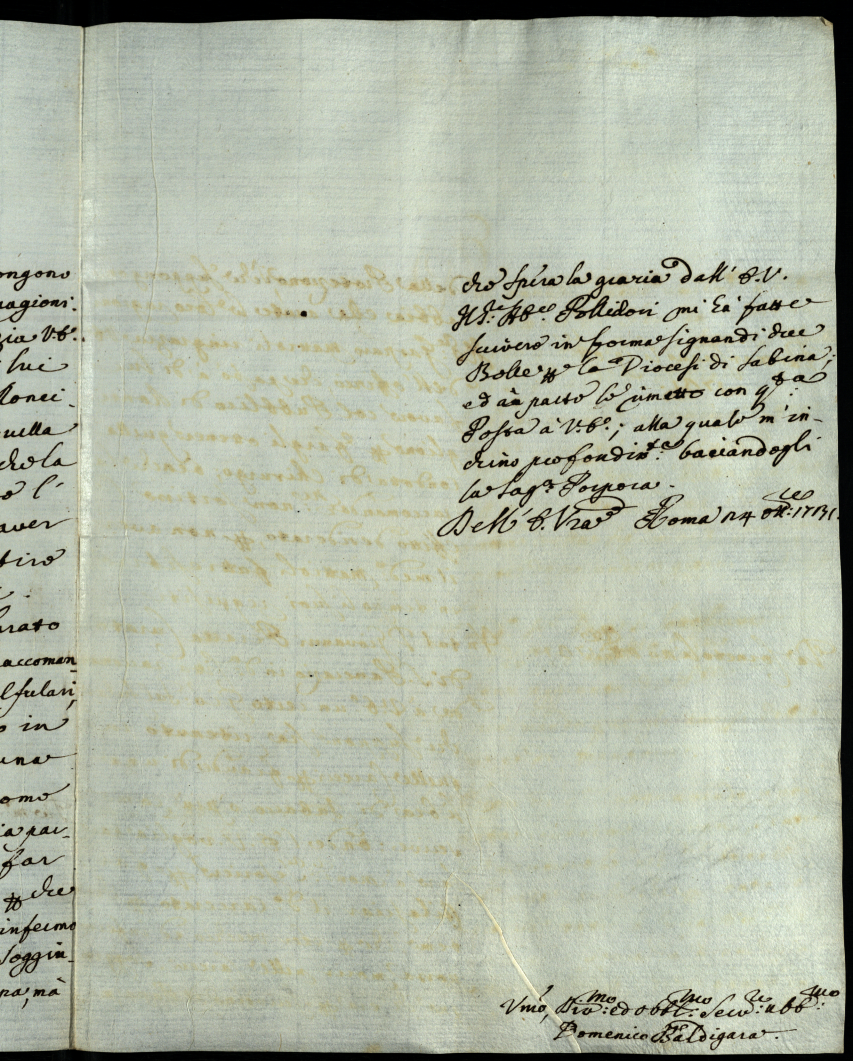 ongono
ragioni:
ria V. E.
lui
Ronci-
quella
che la
e l'
aver
tire
rato
accoman
lfulari,
o in
una
ome
ia par-
far
che
infermo
soggiu-
na, mà
che spera la grazia dall' E. V.
Il S.r Ab.e Pollidori mi hà fatte
scrivere in forma signandi due
Bolle p la Diocesi di Sabina;
ed à parte le rimetto con q.ta
Posta à V. E.; alla quale m' in-
chino profondam.te baciandogli
la Sag.ra Porpora.
Dell' E. Vra Roma 24 Ott.re 1731.
Vmo, Div.mo ed obbl.mo Serv.re obb.mo
Domenico Baldigara.